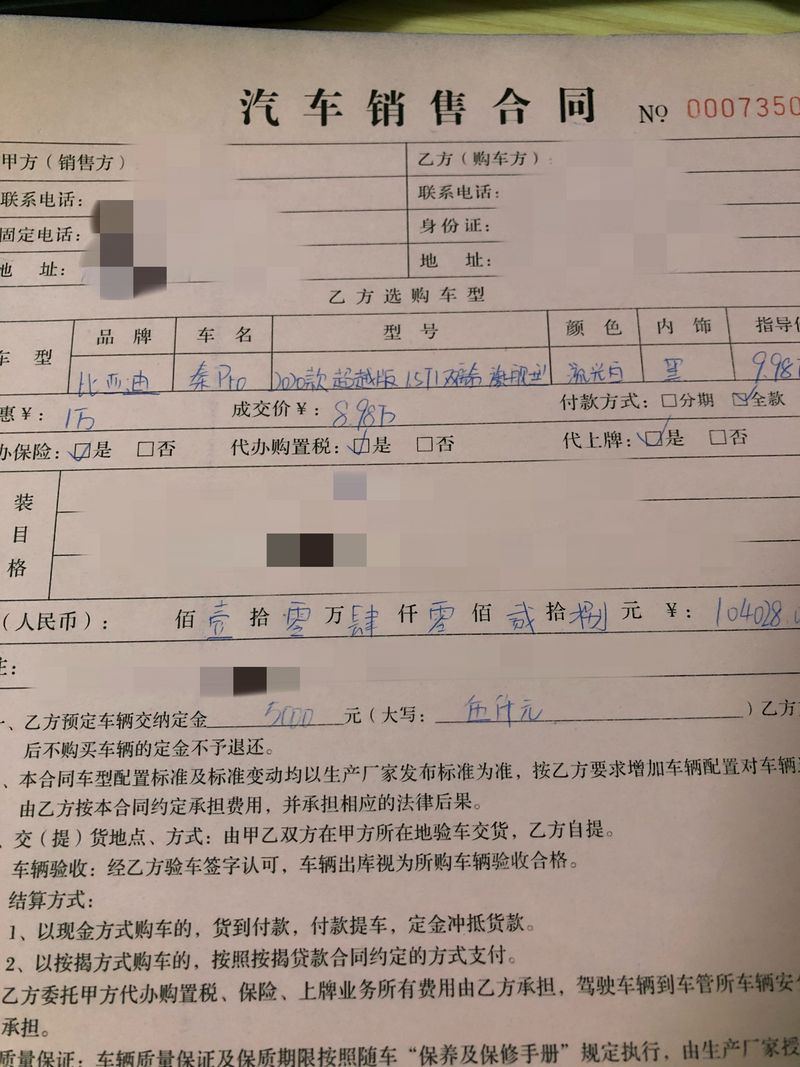 汽车销售合同 № 0007350
甲方（销售方） 乙方（购车方）：
联系电话： 联系电话：
固定电话： 身份证：
地 址： 地 址：
乙方选购车型
车 型 品 牌 车 名 型 号 颜 色 内 饰 指导价
比亚迪 秦Pro 2020款 超越版 1.5TI 双离合 旗舰型 流光白 黑 9.98
惠￥：1万 成交价￥：8.98万 付款方式：□分期 ☑全款
办保险：☑是 □否 代办购置税：☑是 □否 代上牌：☑是 □否
装
目
格
（人民币）： 佰 壹 拾 零 万 肆 仟 零 佰 贰 拾 捌 元 ￥：104028.0
注：
一、乙方预定车辆交纳定金 5000 元（大写： 伍仟元 ）乙方
后不购买车辆的定金不予退还。
、本合同车型配置标准及标准变动均以生产厂家发布标准为准，按乙方要求增加车辆配置对车辆
由乙方按本合同约定承担费用，并承担相应的法律后果。
、交（提）货地点、方式：由甲乙双方在甲方所在地验车交货，乙方自提。
车辆验收：经乙方验车签字认可，车辆出库视为所购车辆验收合格。
结算方式：
1、以现金方式购车的，货到付款，付款提车，定金冲抵货款。
2、以按揭方式购车的，按照按揭贷款合同约定的方式支付。
乙方委托甲方代办购置税、保险、上牌业务所有费用由乙方承担，驾驶车辆到车管所车辆安
承担。
质量保证：车辆质量保证及保质期限按照随车“保养及保修手册”规定执行，由生产厂家授